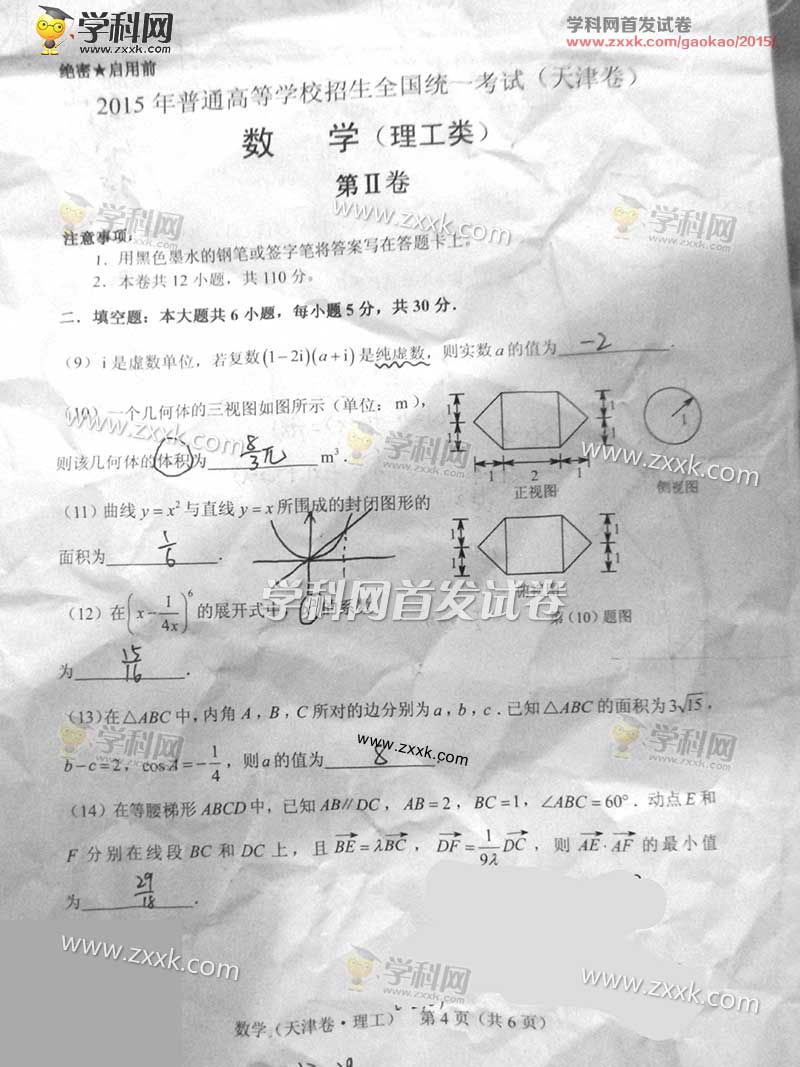 学科网
www.zxxk.com
学科网首发试卷
www.zxxk.com/gaokao/2015/
绝密★启用前
2015 年普通高等学校招生全国统一考试（天津卷）
数 学（理工类）
第Ⅱ卷
学科网
www.zxxk.com
学科网
www.zxxk.com
学科网
www.zxxk.com
注意事项：
1．用黑色墨水的钢笔或签字笔将答案写在答题卡上。
2．本卷共 12 小题，共 110 分。
二．填空题：本大题共 6 小题，每小题 5 分，共 30 分．
（9）i 是虚数单位，若复数 (1−2i)(a+i) 是纯虚数，则实数 a 的值为 -2 ．
（10）一个几何体的三视图如图所示（单位：m），
则该几何体的体积为 8/3 π m³．
1 1 1 1 1 2 1
1
正视图
侧视图
学科网
www.zxxk.com
www.zxxk.com
（11）曲线 y = x² 与直线 y = x 所围成的封闭图形的
面积为 1/6 ．
1 1 1 1
学科网首发试卷
（12）在 (x − 1/4x)⁶ 的展开式中，
为 15/16 ．
第（10）题图
（13）在 △ABC 中，内角 A，B，C 所对的边分别为 a，b，c．已知 △ABC 的面积为 3√15，
b−c=2，cos A = −1/4，则 a 的值为 8
www.zxxk.com
（14）在等腰梯形 ABCD 中，已知 AB∥DC，AB=2，BC=1，∠ABC=60°．动点 E 和
F 分别在线段 BC 和 DC 上，且 BE = λBC，DF = 1/9λ DC，则 AE · AF 的最小值
为 29/18 ．
www.zxxk.com
学科网
www.zxxk.com
www.zxxk.com
数学（天津卷·理工） 第 4 页（共 6 页）